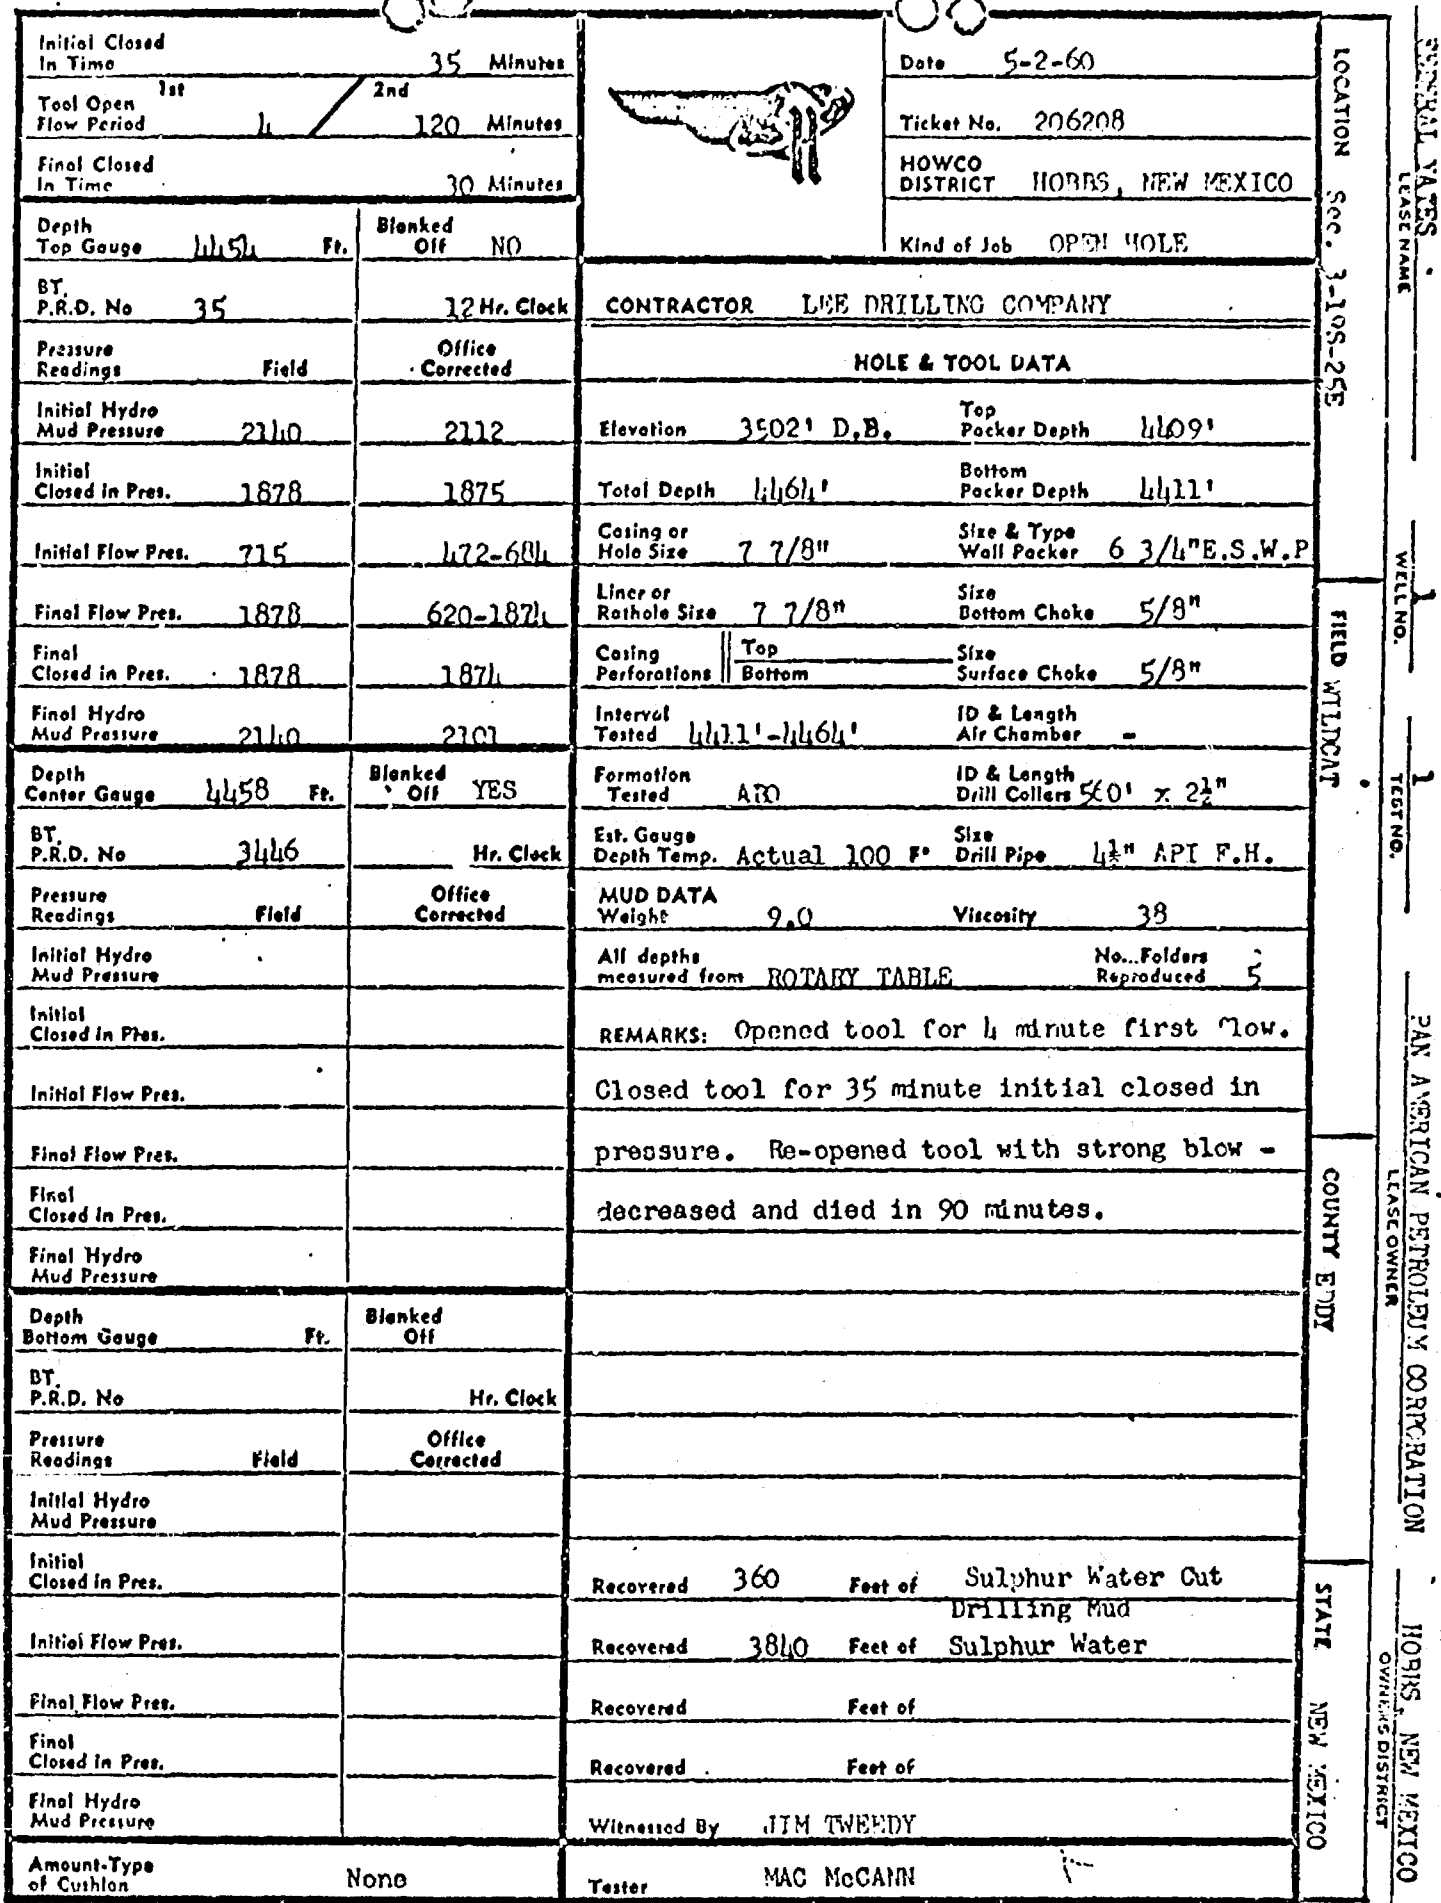 Initial Closed
In Time 35 Minutes
1st 2nd
Tool Open
Flow Period 4 / 120 Minutes
Final Closed
In Time 30 Minutes
Depth
Top Gauge 4454 Ft.
Blanked
Off NO
BT.
P.R.D. No 35 12 Hr. Clock
Pressure
Readings Field
Office
Corrected
Initial Hydro
Mud Pressure 2140 2112
Initial
Closed in Pres. 1878 1875
Initial Flow Pres. 715 472-684
Final Flow Pres. 1878 620-1874
Final
Closed in Pres. 1878 1874
Final Hydro
Mud Pressure 2140 2101
Depth
Center Gauge 4458 Ft.
Blanked
Off YES
BT.
P.R.D. No 3446 Hr. Clock
Pressure
Readings Field
Office
Corrected
Initial Hydro
Mud Pressure
Initial
Closed in Pres.
Initial Flow Pres.
Final Flow Pres.
Final
Closed in Pres.
Final Hydro
Mud Pressure
Depth
Bottom Gauge Ft.
Blanked
Off
BT.
P.R.D. No Hr. Clock
Pressure
Readings Field
Office
Corrected
Initial Hydro
Mud Pressure
Initial
Closed in Pres.
Initial Flow Pres.
Final Flow Pres.
Final
Closed in Pres.
Final Hydro
Mud Pressure
Amount-Type
of Cushion None
Date 5-2-60
Ticket No. 206208
HOWCO
DISTRICT HOBBS, NEW MEXICO
Kind of Job OPEN HOLE
CONTRACTOR LEE DRILLING COMPANY
HOLE & TOOL DATA
Elevation 3502' D.B.
Top
Packer Depth 4409'
Total Depth 4464'
Bottom
Packer Depth 4411'
Casing or
Hole Size 7 7/8"
Size & Type
Wall Packer 6 3/4"E.S.W.P
Liner or
Rathole Size 7 7/8"
Size
Bottom Choke 5/8"
Casing
Perforations
Top
Bottom
Size
Surface Choke 5/8"
Interval
Tested 4411'-4464'
ID & Length
Air Chamber -
Formation
Tested ABO
ID & Length
Drill Collars 560' x 2½"
Est. Gauge
Depth Temp. Actual 100 F°
Size
Drill Pipe 4½" API F.H.
MUD DATA
Weight 9.0 Viscosity 38
All depths
measured from ROTARY TABLE
No...Folders
Reproduced 5
REMARKS: Opened tool for 4 minute first flow.
Closed tool for 35 minute initial closed in
pressure. Re-opened tool with strong blow -
decreased and died in 90 minutes.
Recovered 360 Feet of Sulphur Water Cut
Drilling Mud
Recovered 3840 Feet of Sulphur Water
Recovered Feet of
Recovered Feet of
Witnessed By JIM TWEEDY
Tester MAC McCANN
LOCATION Sec. 3-10S-25E
FIELD WILDCAT
COUNTY EDDY
STATE NEW MEXICO
YATES
LEASE NAME
1
WELL NO.
1
TEST NO.
PAN AMERICAN PETROLEUM CORPORATION
LEASE OWNER
HOBBS, NEW MEXICO
OWNERS DISTRICT